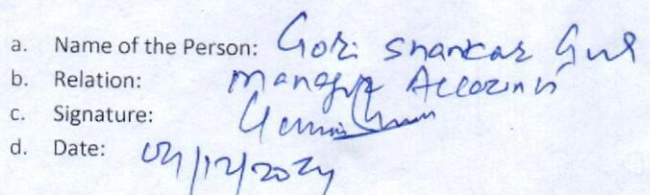 a. Name of the Person: Gori Shankar
b. Relation: Manager Accounts
c. Signature:
d. Date: 04/12/2024